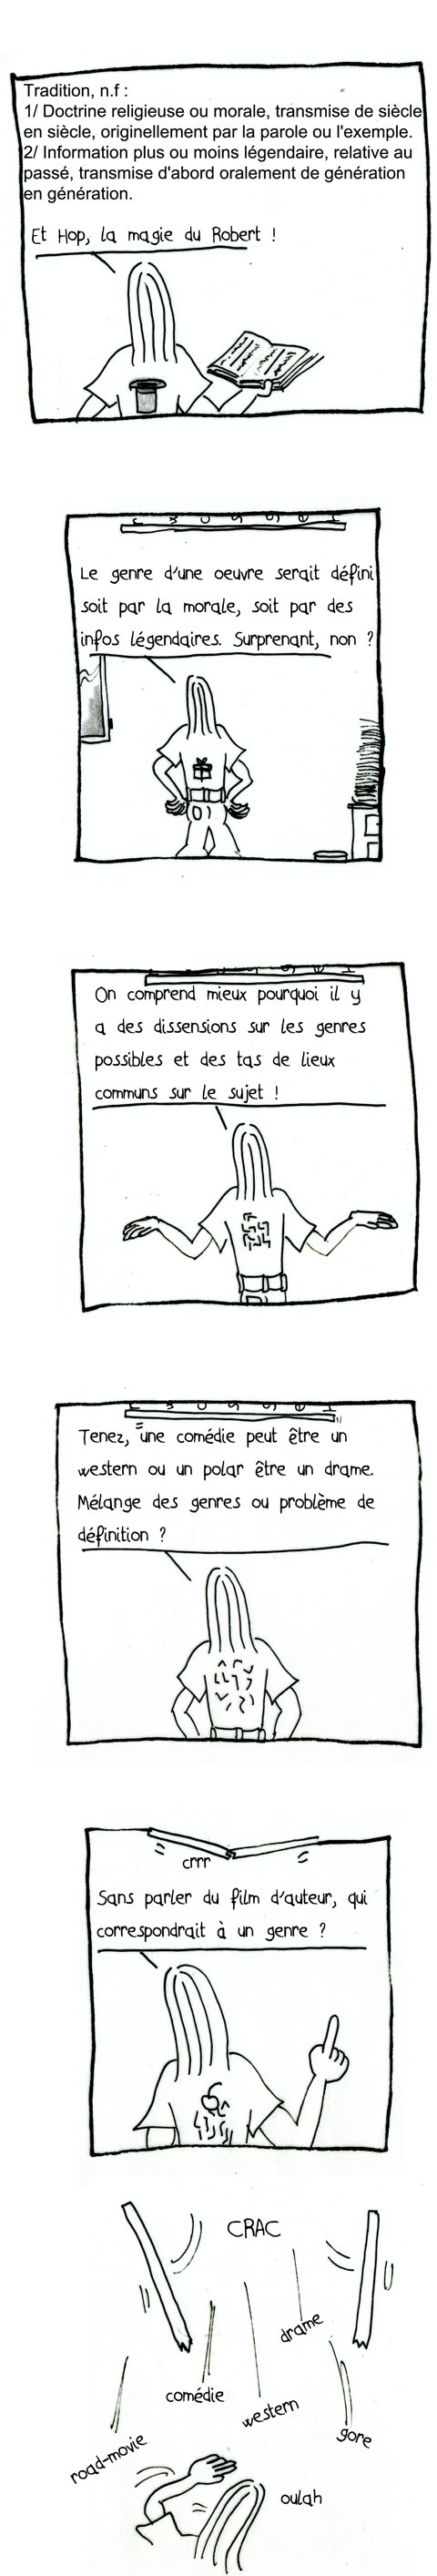 Tradition, n.f :
1/ Doctrine religieuse ou morale, transmise de siècle
en siècle, originellement par la parole ou l'exemple.
2/ Information plus ou moins légendaire, relative au
passé, transmise d'abord oralement de génération
en génération.
Et Hop, la magie du Robert !
Le genre d'une oeuvre serait défini
soit par la morale, soit par des
infos légendaires. Surprenant, non ?
On comprend mieux pourquoi il y
a des dissensions sur les genres
possibles et des tas de lieux
communs sur le sujet !
Tenez, une comédie peut être un
western ou un polar être un drame.
Mélange des genres ou problème de
définition ?
crrr
Sans parler du film d'auteur, qui
correspondrait à un genre ?
CRAC
drame
comédie
western
gore
road-movie
oulah